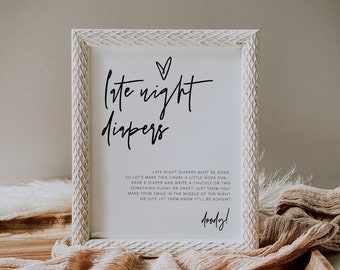 late night
diapers
LATE NIGHT DIAPERS MUST BE DONE,
SO LET'S MAKE THIS CHORE A LITTLE MORE FUN...
GRAB A DIAPER AND WRITE A CHUCKLE OR TWO
SOMETHING FUNNY OR SWEET, JUST FROM YOU!
MAKE THEM SMILE IN THE MIDDLE OF THE NIGHT
OR JUST LET THEM KNOW IT'LL BE ALRIGHT
doody!